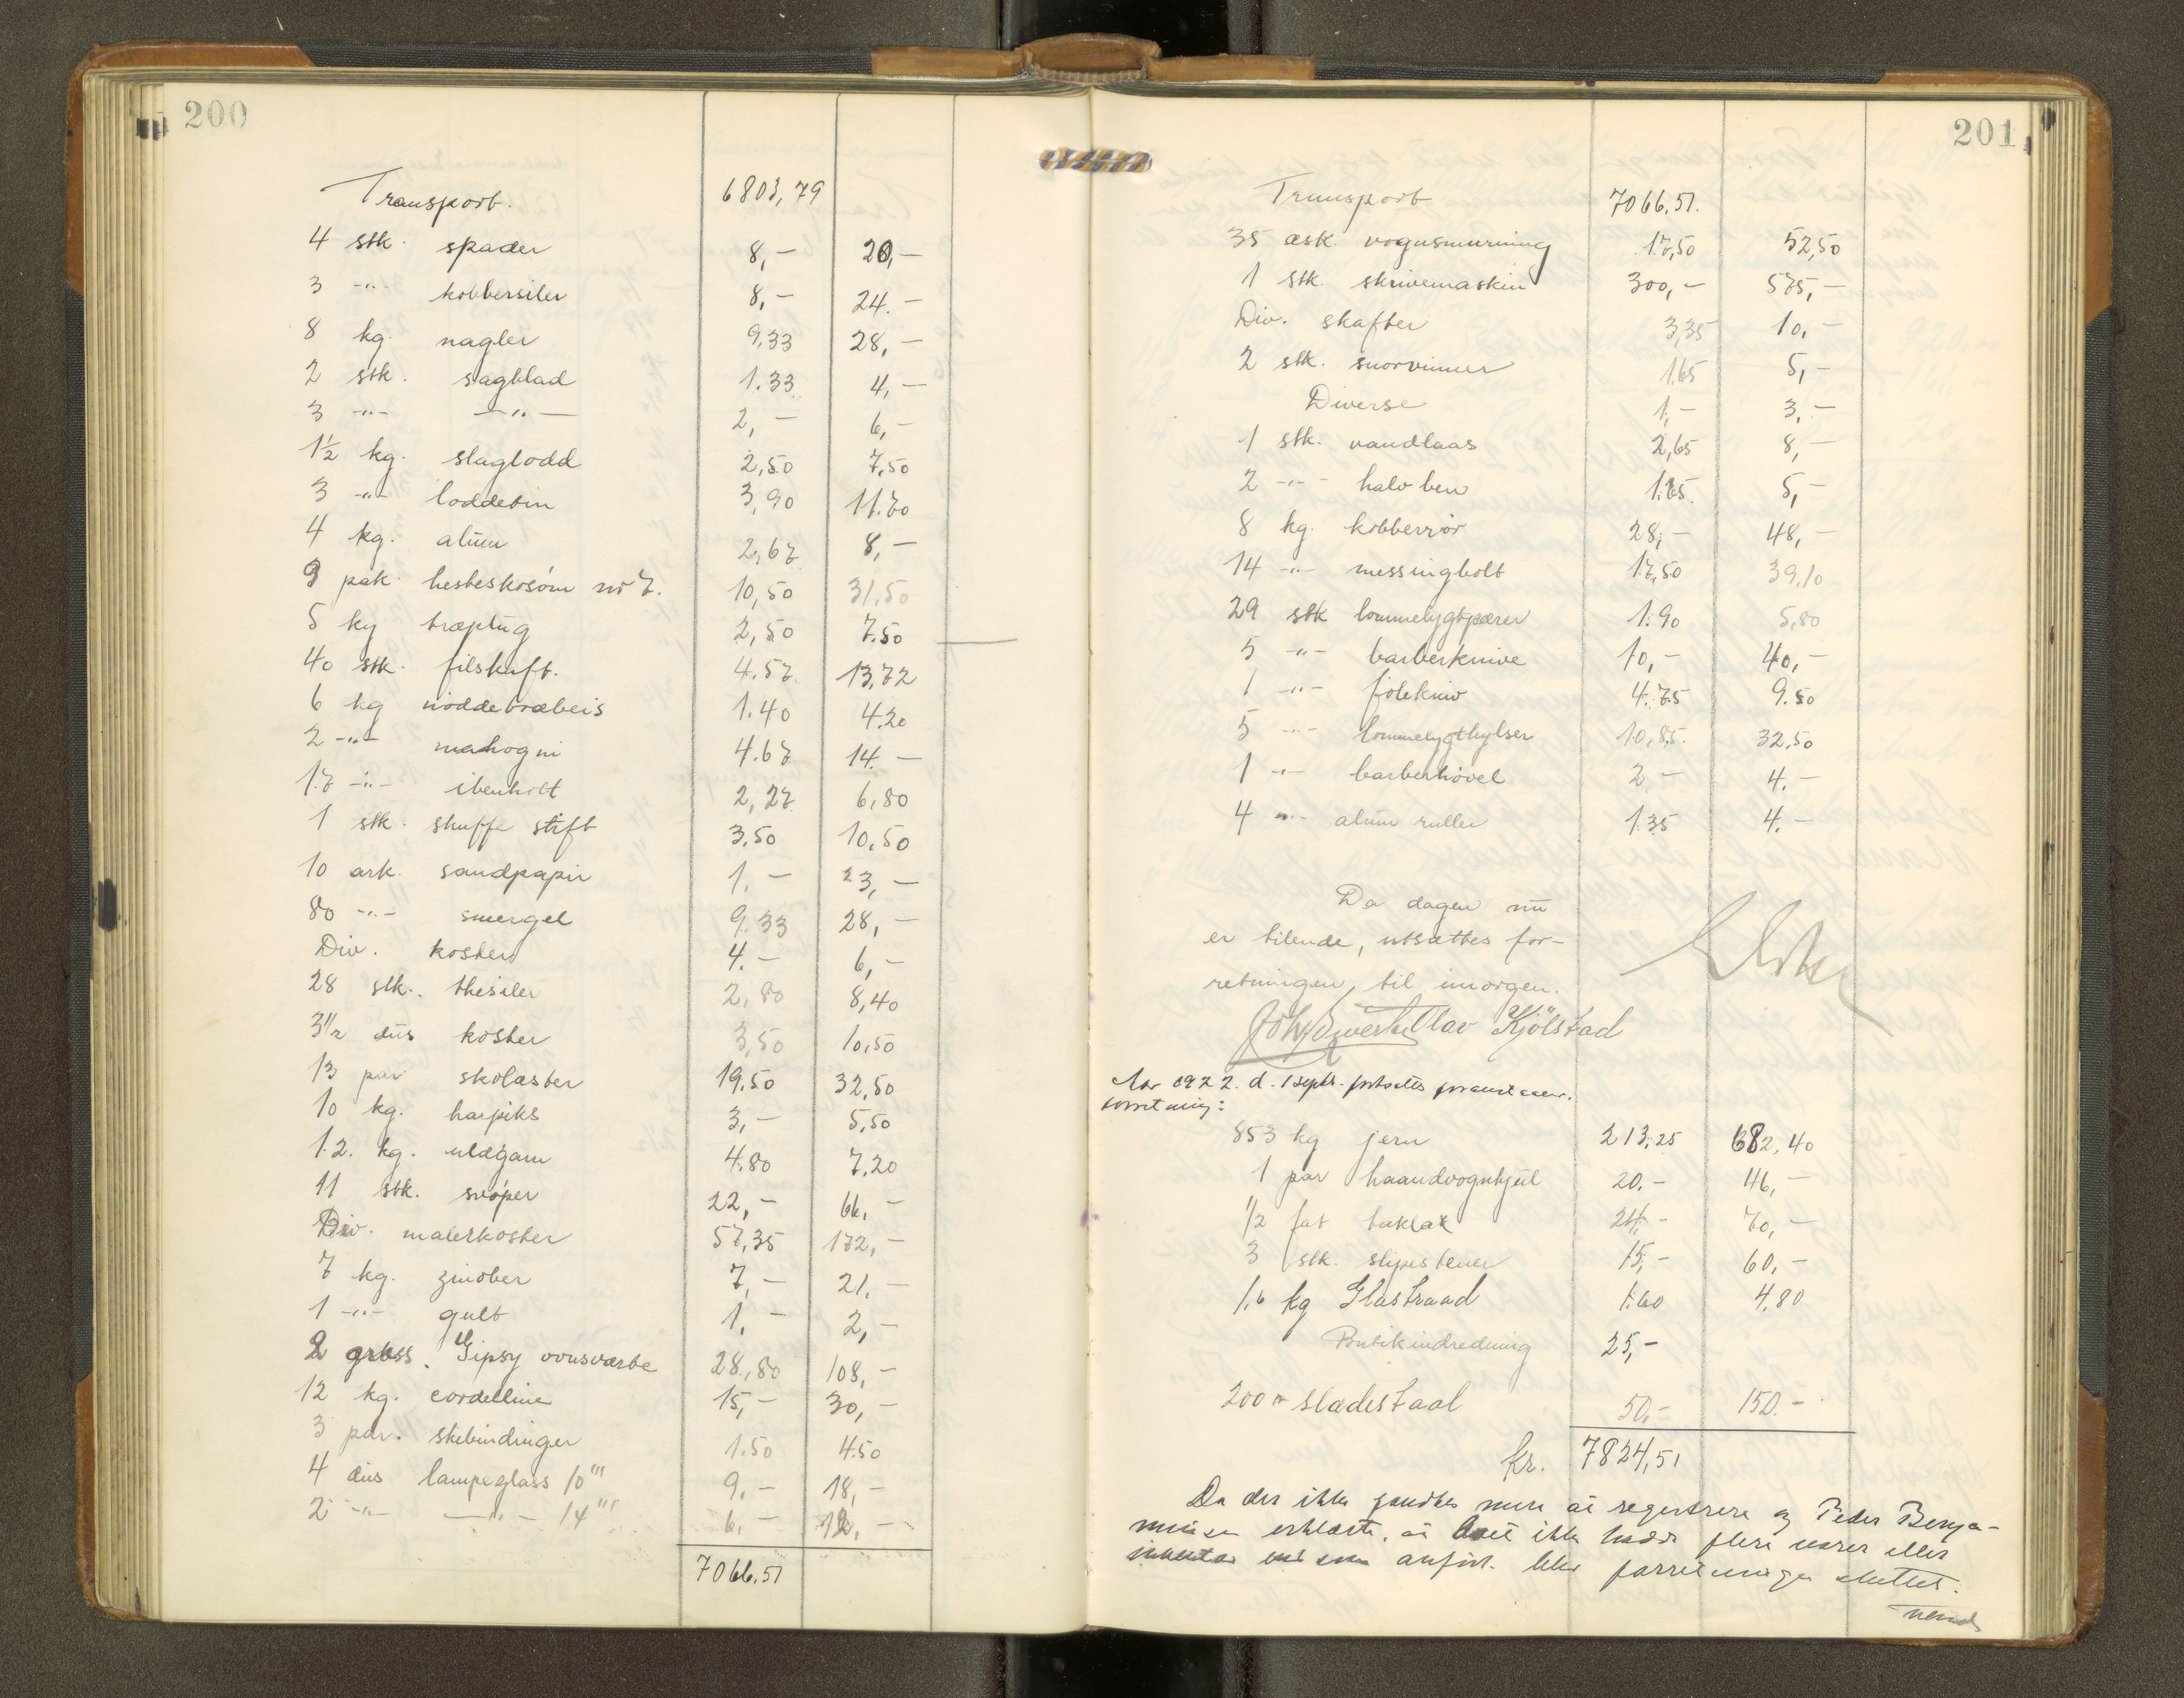 200
Transport. 6803,79
4 stk. spader 8,- 20,-
3 -"- kobbersiler 8,- 24.-
8 kg. nagler 9,33 28,-
2 stk. sagblad 1.33 4,-
3 -"- -"- 2,- 6,-
1½ kg. slaglodd 2,50 7,50
3 -"- loddetin 3,90 11.70
4 kg. alum 2,67 8,-
9 pak. hesteskosöm nr 7. 10,50 31,50
5 kg træplug 2,50 7.50
40 stk. filskaft. 4.57 13,72
6 kg nöddetræbeis 1.40 4.20
2 -"- mahogni 4.67 14.-
1.7 -"- ibenholt 2,27 6,80
1 stk. stift 3,50 10,50
10 ark. sandpapir 1.- 3,-
80 -"- smergel 9.33 28,-
Div. koster 4.- 6,-
28 stk. thesiler 2,80 8,40
3½ dus koster 3,50 10,50
13 par skolæster 19.50 32,50
10 kg. harpiks 3,- 5,50
1.2. kg. uldgarn 4.80 7.20
11 stk. svöper 22,- 66,-
Div. malerkoster 57,35 172,-
7 kg. zinober 7,- 21,-
1 -"- gult 1,- 2,-
2 gross. Gipsy ovnsværte 28,80 108,-
12 kg. cordelline 15,- 30,-
3 par. skibindinger 1.50 4.50
4 dus lampeglass 10''' 9.- 18,-
2 -"- -"- 14''' 6.- 12,-
7066,51
201
Transport 7066,51.
35 æsk. vognsmurning 17,50 52,50
1 stk. skrivemaskin 300,- 575,-
Div. skafter 3,35 10,-
2 stk. snorvinner 1.65 5,-
Diverse 1,- 3,-
1 stk. vandlaas 2,65 8,-
2 -"- halv ben 1.65. 5,-
8 kg. kobberrör 28,- 48,-
14 -"- messingbolt 17,50 39,10
29 stk lommelygtpærer 1.90 5,80
5 -"- barberknive 10,- 40,-
1 -"- 4.75 9.50
5 -"- lommelygthylser 10,85. 32,50
1 -"- barberhövel 2- 4.-
4 -"- alum ruller 1.35 4.-
Da dagen nu
er tilende, utsættes for-
retningen til imorgen.
Olav Kjölstad
Aar 1922. d. 1 septr. fortsattes
forretning:
853 kg jern 213,25 682,40
1 par haandvognhjul 20.- 46,-
1/2 fat taklak 24,- 70,-
3 stk. slipestener 15,- 60,-
1,6 kg Glastraad 1.60 4,80
Butikindredning 25,-
200 sladestaal 50,- 150.-
kr. 7824,51
Da der ikke fandtes mere at registrere og Peder Benja-
minsen erklærte, at ikke hadde flere varer eller
inventar end som anfört. blev forretningen sluttet.